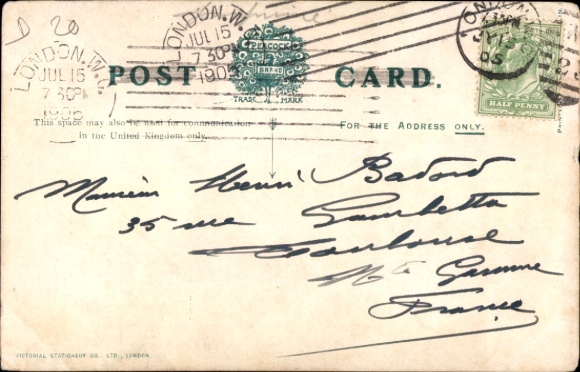 LONDON.W.
JUL 15
7 30PM
1905
LONDON.W.
JUL 15
7 30PM
1905
LONDON
05
HALF PENNY
POST CARD.
PEACOCK
BRAND
TRADE MARK
This space may also be used for communication
in the United Kingdom only.
FOR THE ADDRESS ONLY.
Monsieur Henri Badord
35 rue Gambetta
Toulouse
Hte Garonne
France
PICTORIAL STATIONERY CO., LTD., LONDON